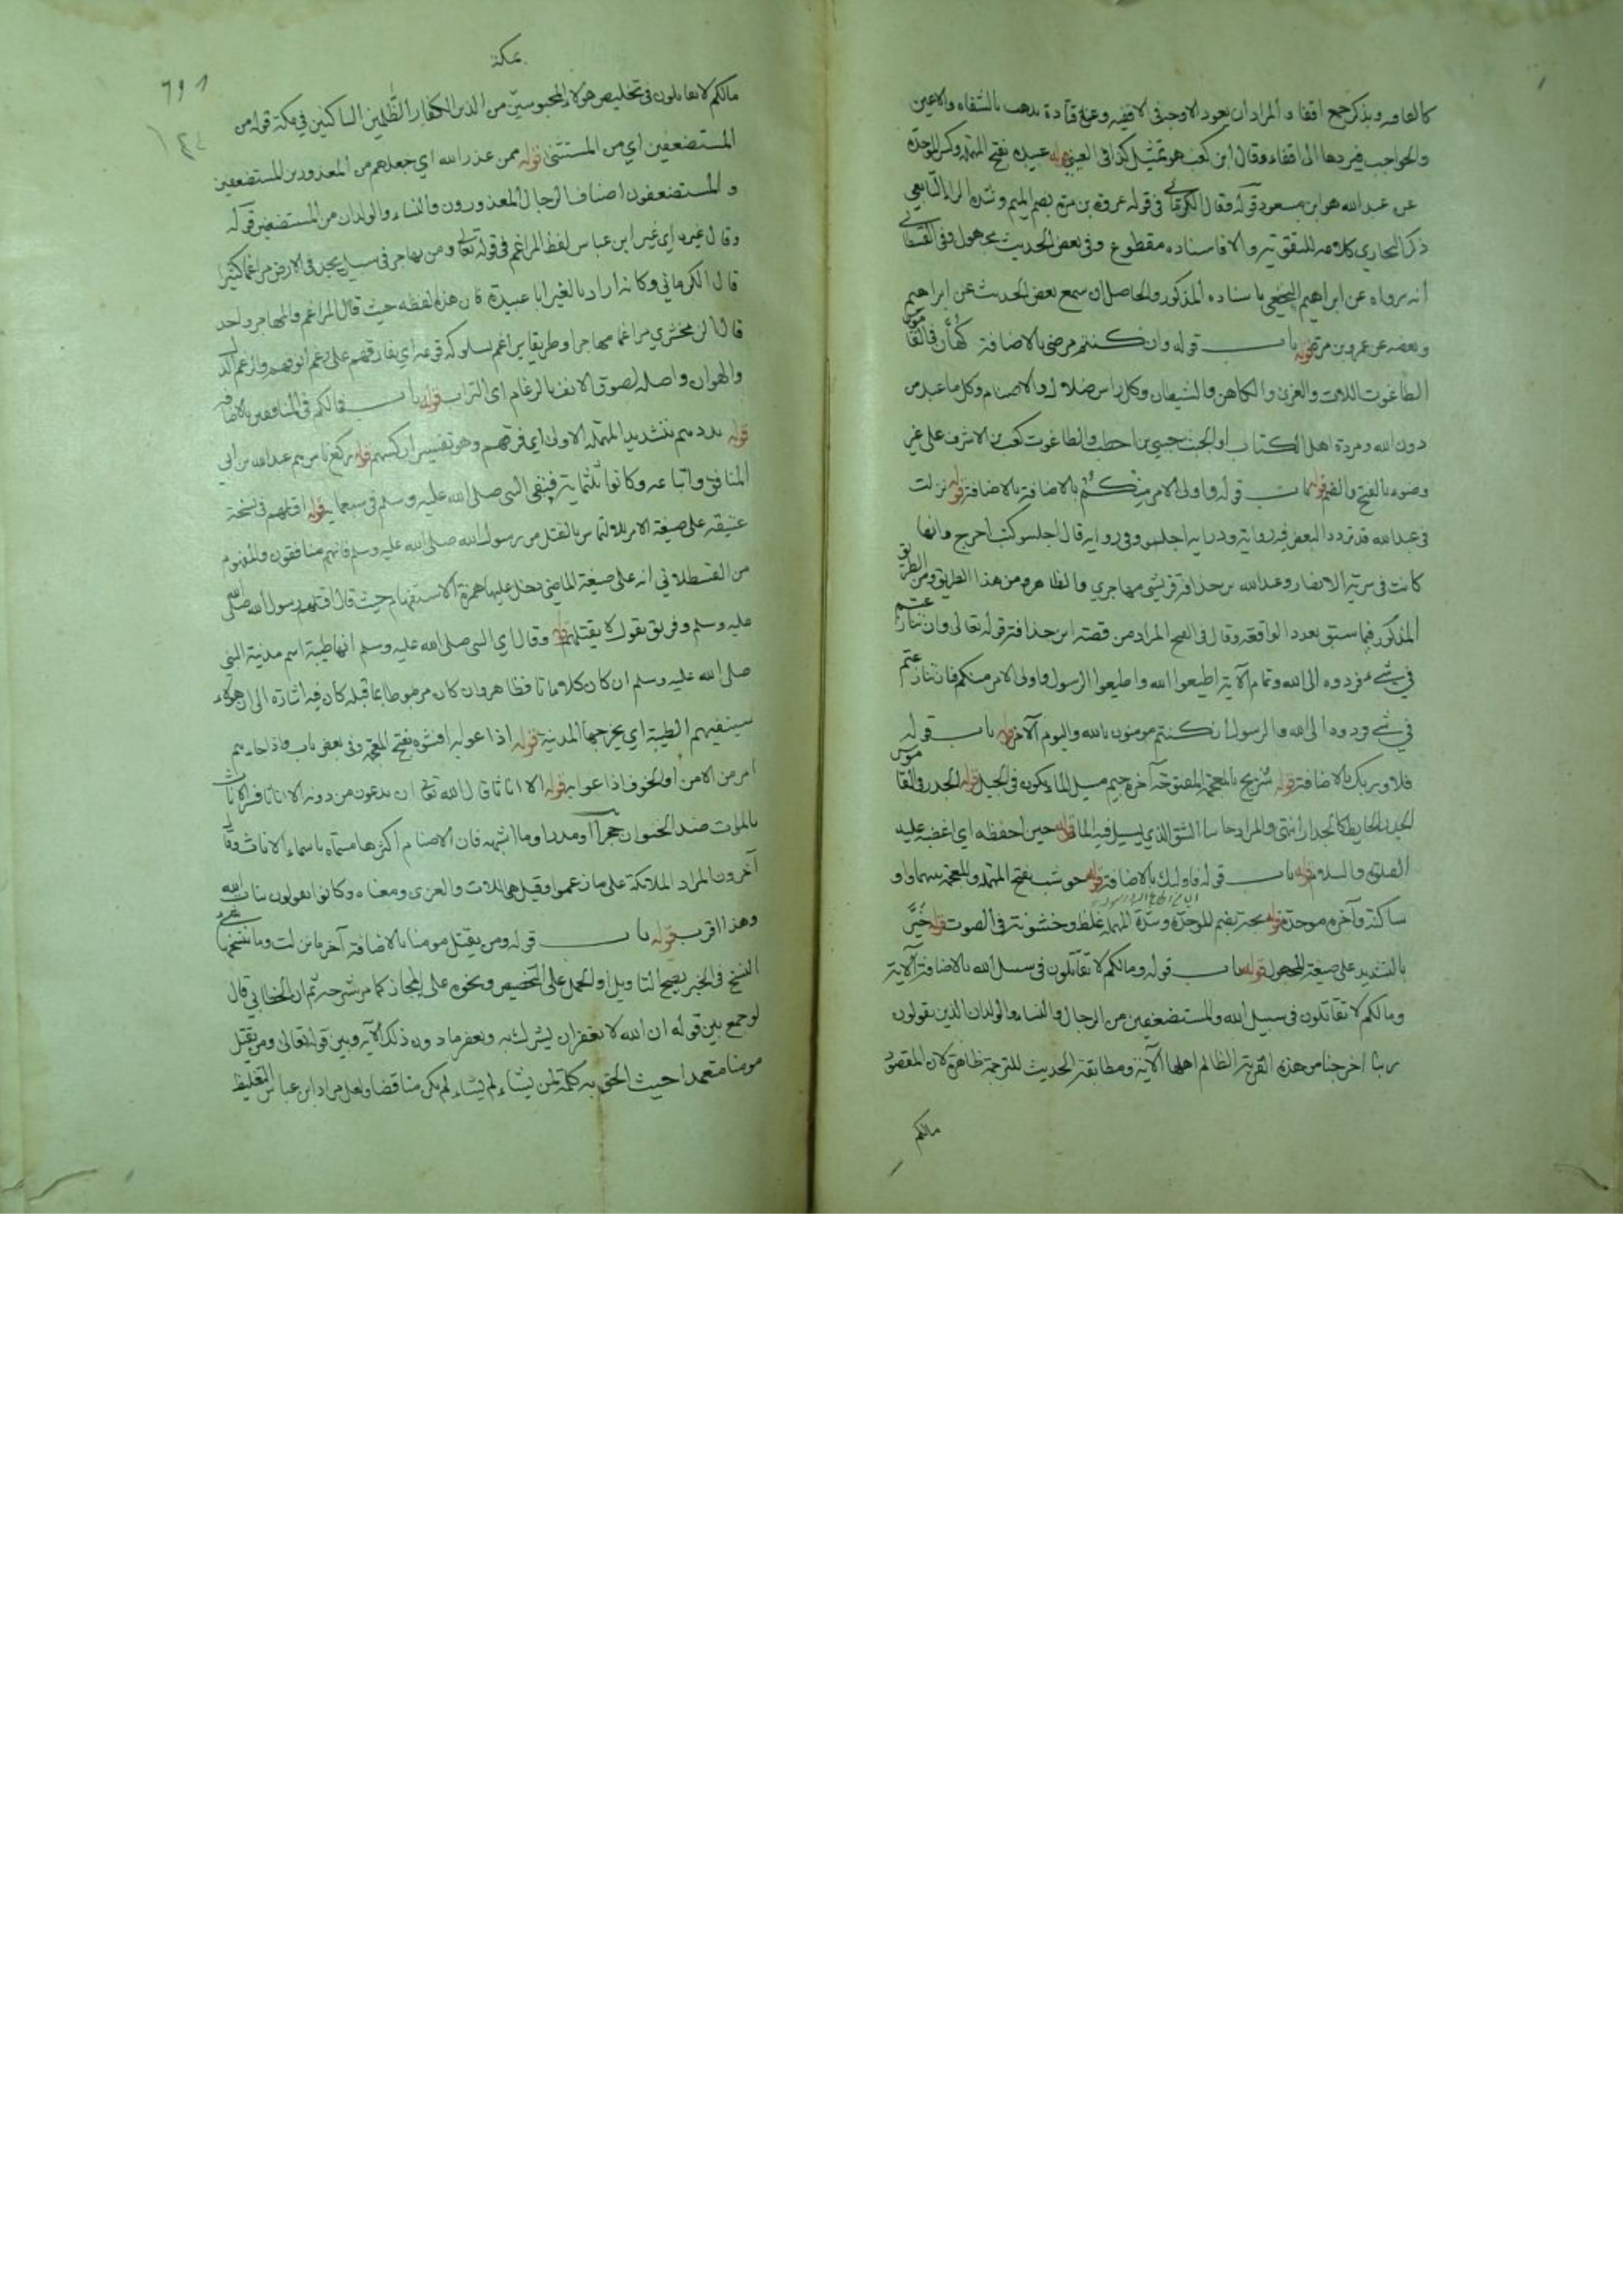 كالقافه ويذكر جمع اقفا والمراد ان يعود الاوجه في الاقفيه وعن قتادة يذهب بالشفاه والاعين
والحواجب فيردها الى اقفاء وقال ابن كعب هو تمثيل كذا في العيني قوله عبيدة بفتح المهملة وكسر الموحدة
عن عبد الله هو ابن مسعود قوله وقال الكرماني في قوله عمرو بن مرة بضم الميم وشدة الراء التابعي
ذكر البخاري كلامه للتقوية والا فاسناده مقطوع وفي بعض الحديث مجهول وفي القسطلاني
انه يرواه عن ابراهيم النخعي باسناده المذكور والحاصل ان سمع بعض الحديث عن ابراهيم
وبعضه عن عمرو بن مرة قوله باب قوله وان كنتم مرضى بالاضافة كهان في القاموس
الطاغوت اللات والعزى والكاهن والشيطان وكل راس ضلال والاصنام وكل ما عبد من
دون الله ومردة اهل الكتاب او الجبت حيي بن اخطب والطاغوت كعب بن الاشرف على غير
وضوء بالفتح والضم قوله باب قوله واولى الامر منكم بالاضافة بالاضافة قوله نزلت
في عبد الله قد تردد البعض فيه رواية ودراية اجلس وفي رواية قال اجلسو كتب احرج وانها
كانت في سرية الانصار وعبد الله بن حذافة قرشي مهاجري والظاهر ومن هذا الطريق ومن الطريق
المذكور فيما سبق بعدد الواقعة وقال في الفتح المراد من قصة ابن حذافة قوله تعالى وان تنازعتم
في شيء فردوه الى الله وتمام الآية اطيعوا الله واطيعوا الرسول واولى الامر منكم فان تنازعتم
في شيء فردوه الى الله والرسول ان كنتم مومنون بالله واليوم الآخر قوله باب قوله
فلا وربك بالاضافة قوله شريج بالمعجمة المفتوحة آخره جيم مسيل الماء يكون في الجبل قوله الجدر في القاموس
الجدر الحايط كالجدار انتهى والمراد هاهنا الشق الذي يسيل فيه الماء قوله حين احفظه اي اغضبه عليه
الصلوة والسلام قوله باب قوله فاوليك بالاضافة قوله حوشب بفتح المهملة والمعجمة بينهما واو
ساكنة وآخره موحدة قوله بحة بضم الموحدة وشدة المهملة غلظ وخشونة في الصوت قوله خير
بالتشديد على صيغة المجهول قوله باب قوله ومالكم لا تقاتلون في سبيل الله بالاضافة الآية
ومالكم لا تقاتلون في سبيل الله والمستضعفين من الرجال والنساء والولدان الذين يقولون
ربنا اخرجنا من هذه القرية الظالم اهلها الآية ومطابقة الحديث للترجمة ظاهرة لان المقصود
مالكم
مكة
مالكم لا تقاتلون في تخليص هولاء المحبوسين من الذين الكفار الظلمين الساكنين في مكة قوله من
المستضعفين اي من المستثنى قوله ممن عذر الله اي جعلهم من المعذورين المستضعفين
والمستضعفون اصناف الرجال المعذورون والنساء والولدان من المستضعفين قوله
وقال غيره اي غير ابن عباس لفظ المراغم في قوله تعالى ومن يهاجر في سبيل يجد في الارض مراغما كثيرا
قال الكرماني وكانه اراد بالغير ابا عبيدة فان هذه لفظه حيث قال المراغم والمهاجر واحد
قال الزمخشري مراغما مهاجرا وطريقا يراغم بسلوكه قومه اي يفارقهم على رغم انوفهم والرغم الذل
والهوان واصله لصوق الانف بالرغام اي التراب قوله باب فمالكم في المنافقين بالاضافة
قوله بددهم بتشديد المهملة الاولى اي فرقهم وهو تفسير اركسهم قوله رجع ناس هم عبد الله بن ابي
المنافق واتباعه وكانوا ثلثماية فبقى النبي صلى الله عليه وسلم في سبعماية قوله اقتلهم في نسخة
عتيقة على صيغة الامر بالالتماس بالقتل من رسول الله صلى الله عليه وسلم فانهم منافقون والمفهوم
من القسطلاني انه على صيغة الماضي دخل عليها همزة الاستفهام حيث قال اقتلهم رسول الله صلى الله
عليه وسلم وفريق يقول لا يقتلهم وقال اي النبي صلى الله عليه وسلم انها طيبة اسم مدينة النبي
صلى الله عليه وسلم ان كان كلاما تاما فظاهر وان كان مربوطا بما قبله كان فيه اشارة الى ان هولاء
سينفيهم الطيبة اي يخرجها المدينة قوله اذاعوا به افشوه بفتح المعجمة وفي بعض باب واذا جاءهم
امر من الامن او الخوف اذاعوا به قوله الا اناثا قال الله تعالى ان يدعون من دونه الا اناثا فسر الاناث
بالموات ضد الحيوان حجرا او مدرا وما اشبهه فان الاصنام اكثرها مسماه باسماء الاناث وقال
آخرون المراد الملائكة على ما زعموا وقيل هي اللات والعزى ومعناه وكانوا يقولون بنات الله
وهذا اقرب قوله باب قوله ومن يقتل مومنا بالاضافة آخر ما نزلت وما نسخها شيء
النسخ في الخبر يصح التاويل او الحمل على التخصيص ونحوه على المجاز كما مر شرحه ثم ان الخطابي قال
لو جمع بين قوله ان الله لا يغفر ان يشرك به ويغفر ما دون ذلك الآية وبين قوله تعالى ومن يقتل
مومنا متعمدا حيث الحق به كلمة لمن يشاء لم يكن مناقضا ولعل مراد ابن عباس التغليظ